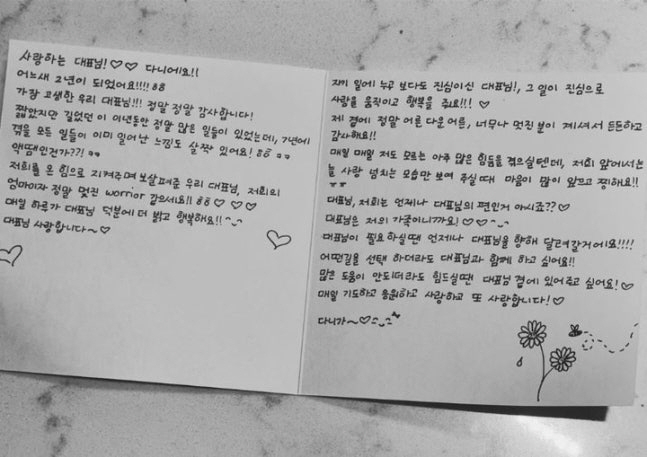 사랑하는 대표님! ♡♡ 다니에요!!
어느새 2년이 되었어요!!!! 88
가장 고생한 우리 대표님!!! 정말 정말 감사합니다!
짧았지만 길었던 이 이년동안 정말 많은 일들이 있었는데, 7년에
겪을 모든 일들이 이미 일어난 느낌도 살짝 있어요! 88
액땜인건가??!
저희를 온 힘으로 지켜주며 보살펴준 우리 대표님, 저희의
엄마이자 정말 멋진 worrior 같으세요!! 88 ♡ ♡ ♡
매일 하루가 대표님 덕분에 더 밝고 행복해요!! ^-^
대표님 사랑합니다~ ♡
자기 일에 누구 보다도 진심이신 대표님!, 그 일이 진심으로
사람을 움직이고 행복을 줘요!!! ♡
제 곁에 정말 어른 다운 어른, 너무나 멋진 분이 계셔서 든든하고
감사해요!!
매일 매일 저도 모르는 아주 많은 힘듦을 겪으실텐데, 저희 앞에서는
늘 사랑 넘치는 모습만 보여 주실때 마음이 많이 아프고 찡해요!!
대표님, 저희는 언제나 대표님의 편인거 아시죠?? ♡
대표님은 저의 가족이니까요! ♡♡ ^-^
대표님이 필요하실땐 언제나 대표님을 향해 달려갈거에요!!!!
어떤길을 선택 하더라도 대표님과 함께 하고 싶어요!!
많은 도움이 안되더라도 힘드실땐 대표님 곁에 있어주고 싶어요! ♡
매일 기도하고 응원하고 사랑하고 또 사랑합니다! ♡
다니가~ ♡ ^-^